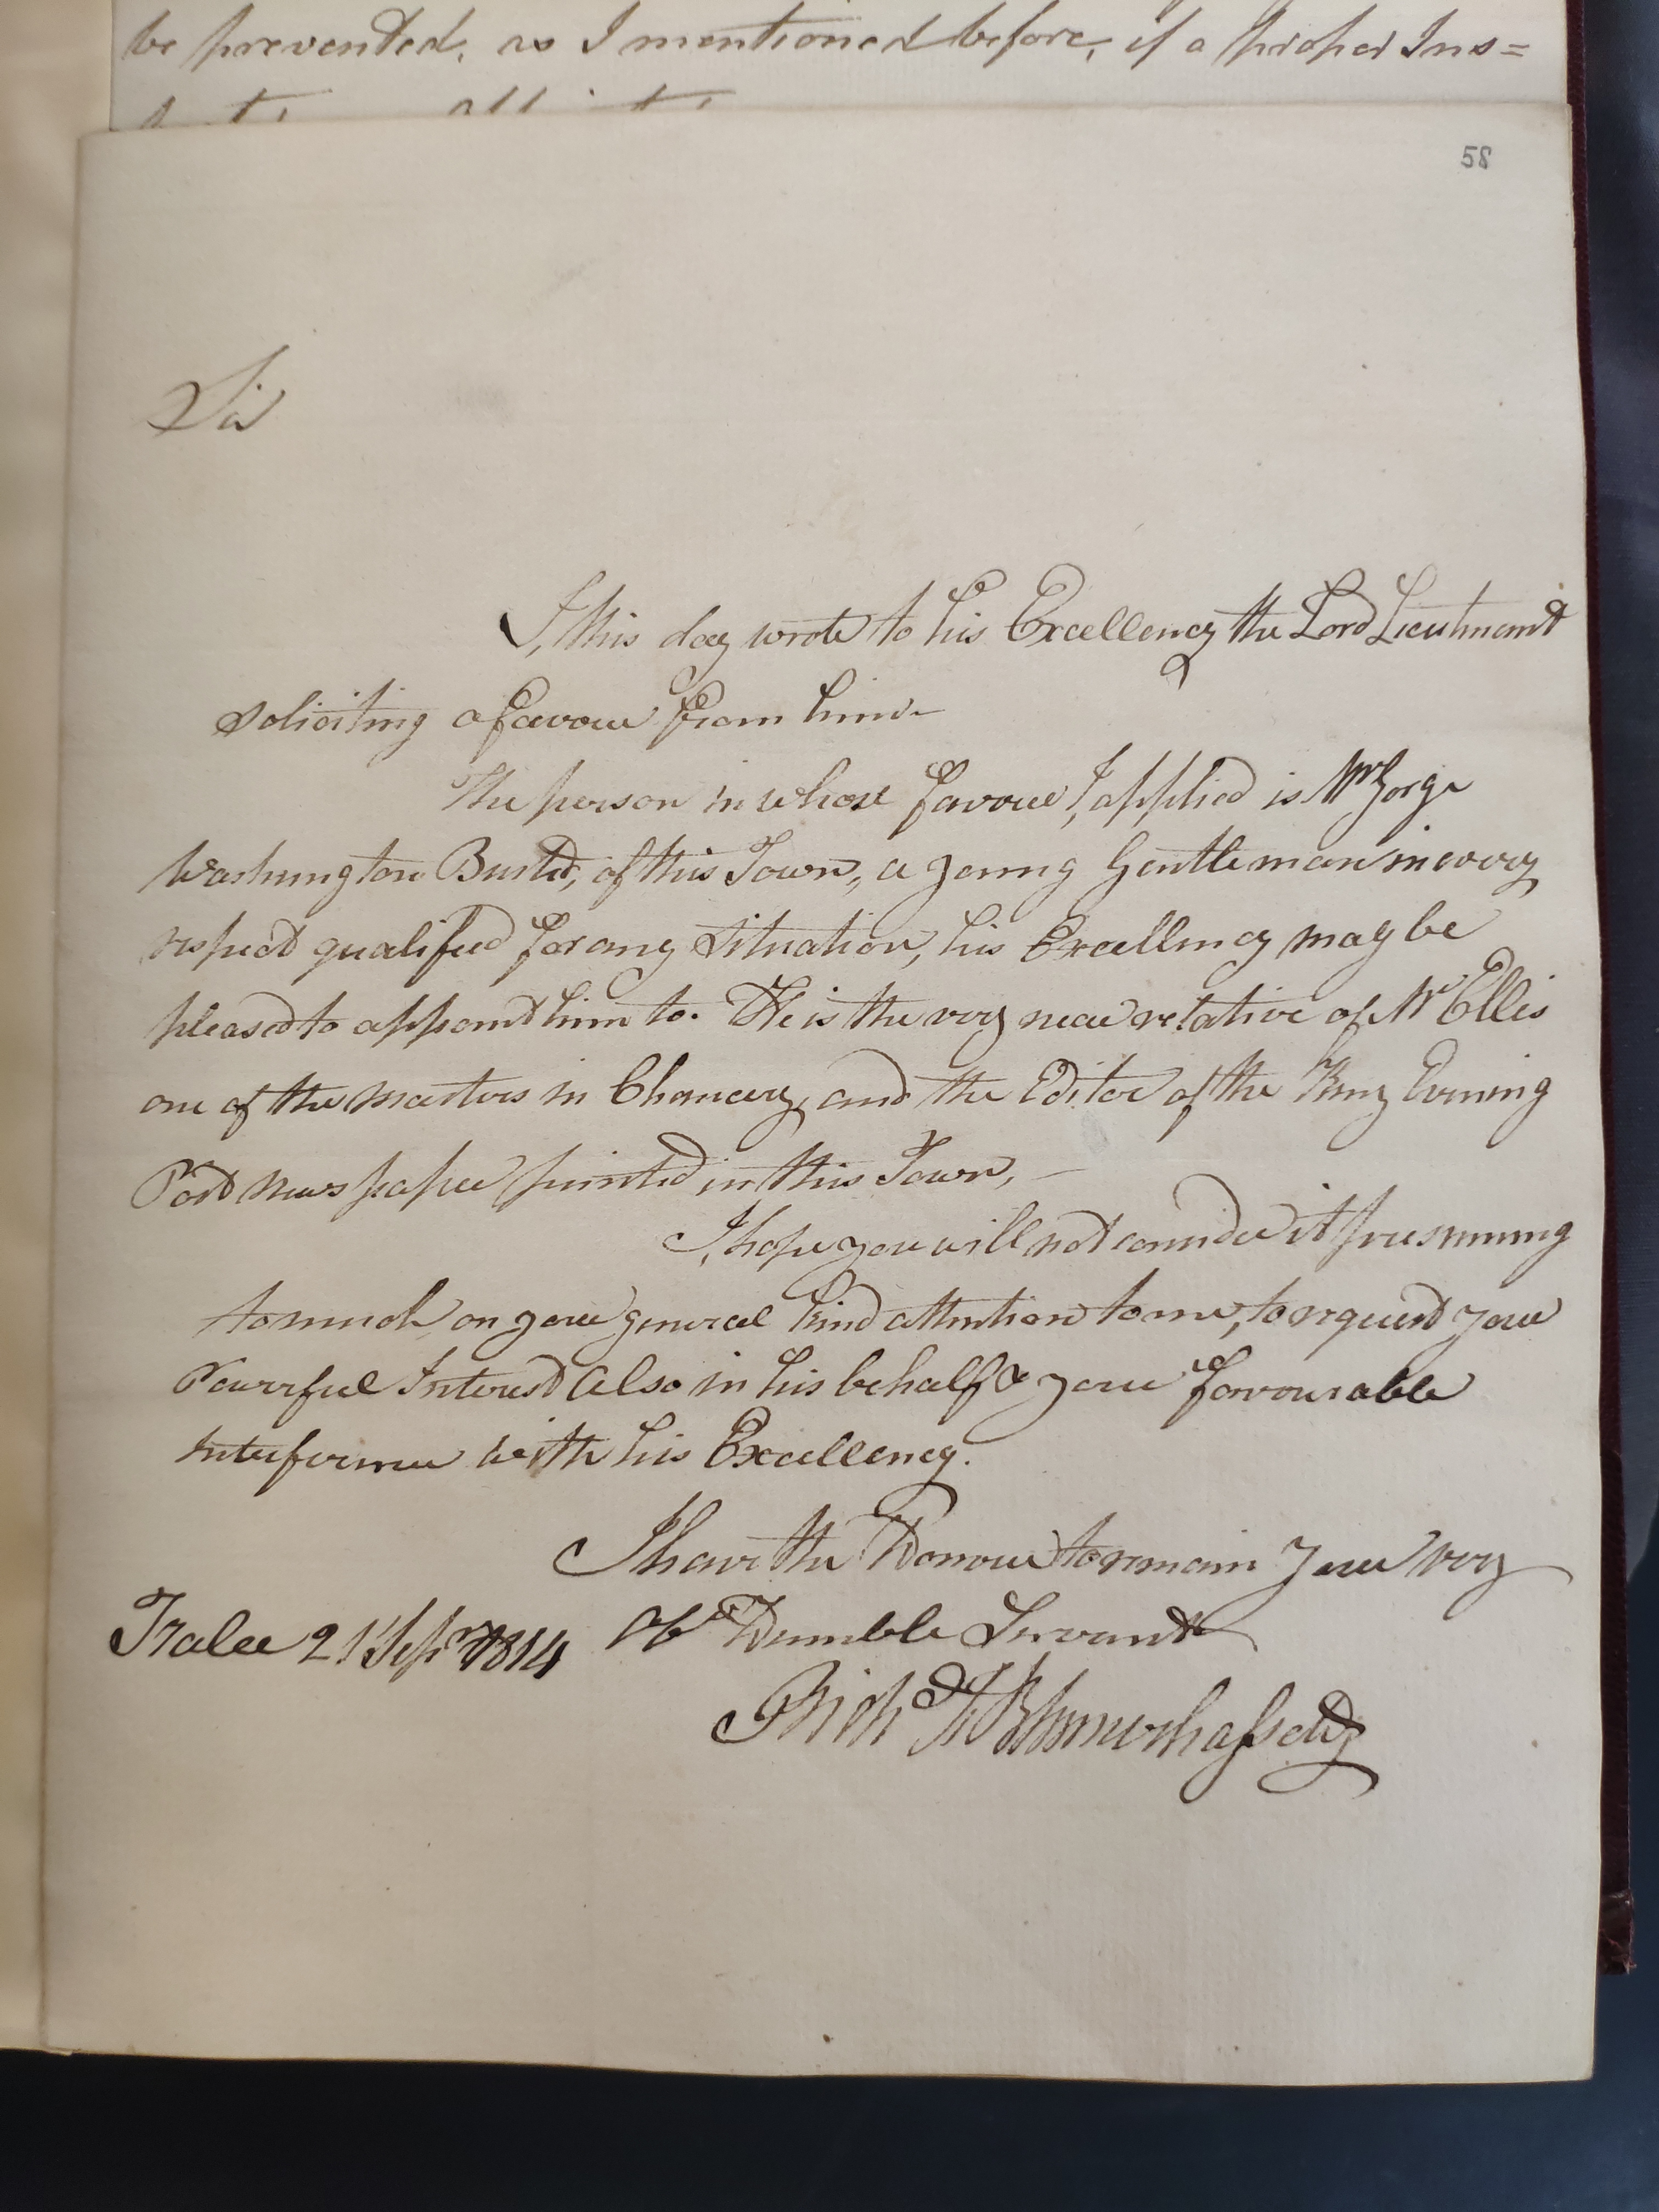 be prevented, as I mentioned before, if a proper Ins=
58
Sir
I, this day wrote to his Excellency the Lord Lieutenant
soliciting a favour from him -
The person in whose favour, I, applied is Mr Gorge
Washington Busted, of this Town, a young Gentleman in every
respect qualified for any situation, his Excellency may be
pleased to appoint him to. He is the very near relative of Mr Ellis
one of the masters in Chancery, and the Editor of the Kerry Evening
Post news paper printed in this Town, -
I, hope you will not consider it presuming
to much on your general kind attention to me, to request your
Powerful Interest also in his behalf & your favourable
interference with his Excellency.
I have the Honour to remain your very
Tralee 21 Sepr 1814 Obt Humble Servant
Richd Blennerhassett